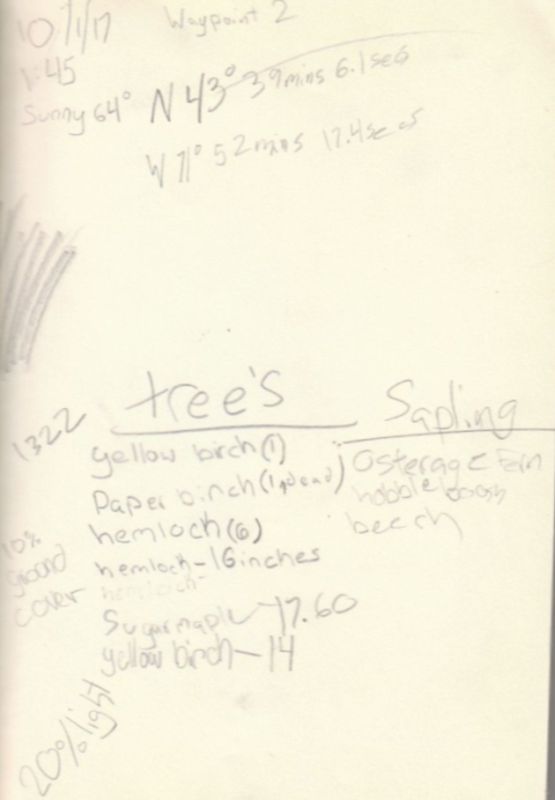 10/1/17 Waypoint 2
1:45
Sunny 64° N 43° 39mins 6.1secs
W 71° 52mins 17.4secs
tree's Sapling
1322
yellow birch (1)
Paper birch (1, dead) Fern
hemloch (6) hobble boosh
hemloch - 16 inches beech
hemloch
Sugar maple - 17.60
yellow birch - 14
10%
ground
cover
20% light